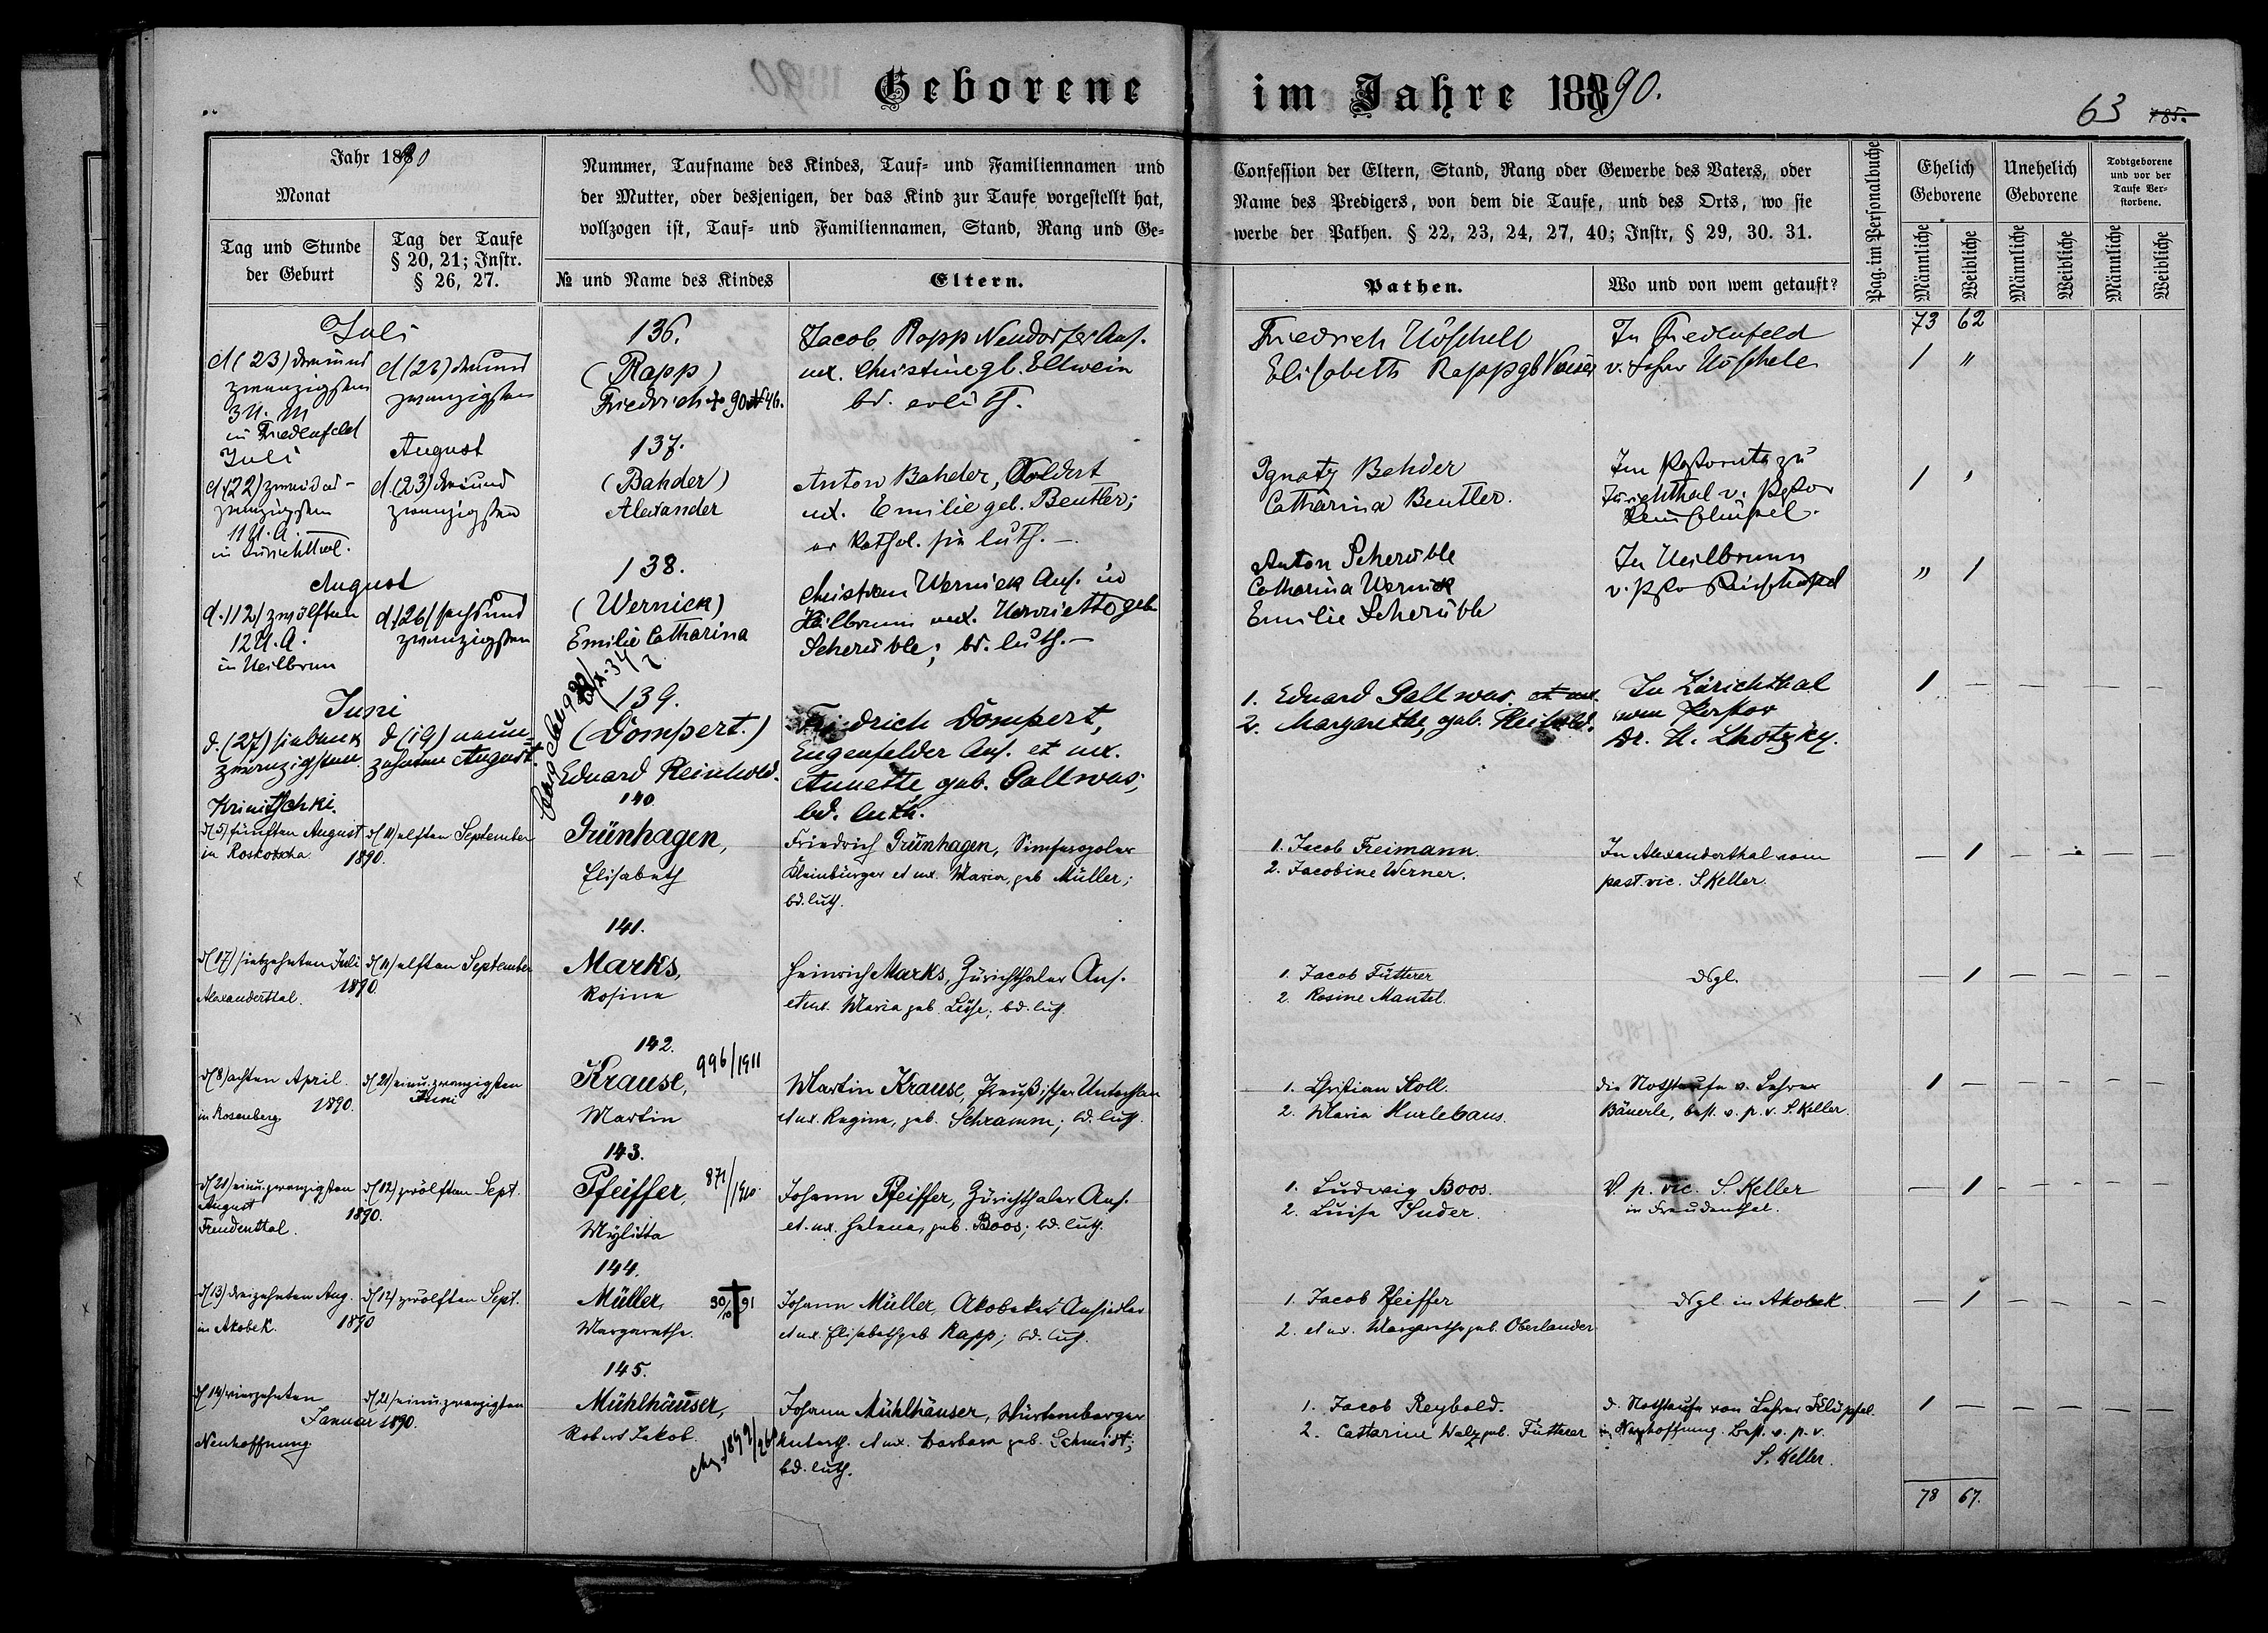 Geborene im Jahre 1890.
63 185.
Jahr 1890
Monat
Tag und Stunde
der Geburt
Tag der Taufe
§ 20, 21; Instr.
§ 26, 27.
Nummer, Taufname des Kindes, Tauf- und Familiennamen und
der Mutter, oder desjenigen, der das Kind zur Taufe vorgestellt hat,
vollzogen ist, Tauf- und Familiennamen, Stand, Rang und Ge-
№ und Name des Kindes
Eltern.
Confession der Eltern, Stand, Rang oder Gewerbe des Vaters, oder
Name des Predigers, von dem die Taufe, und des Orts, wo sie
werbe der Pathen. § 22, 23, 24, 27, 40; Instr, § 29, 30. 31.
Pathen.
Wo und von wem getauft?
Pag. im Personalbuche
Ehelich
Geborene
Unehelich
Geborene
Todtgeborene
und vor der
Taufe Ver-
storbene.
Männliche
Weibliche
Männliche
Weibliche
Männliche
Weibliche
73 62
Juli
d (23) dreiund
zwanzigsten
3 U. M
in Friedenfeld
zwanzigsten
136.
(Rapp)
Friedrich
Jacob Rapp Neudorfer Ans.
ux. Christine gb. Ellwein
bd. ev luth.
Friedrich Höschele
Elisabeth Rapp gb
In Friedenfeld
v. Lehrer Höschele
1 "
Juli
d (22) zweiund-
zwanzigsten
11 U. A.
in Zürichthal.
August
d. (23) dreiund
zwanzigsten
137.
(Bahder)
Alexander
Anton Bahder, Soldat
ux. Emilie geb. Beutler;
er kathol. sie luth. —
Ignatz Bahder
Catharina Beutler.
Im Pastorate zu
Zürichthal v. Pastor
1 "
August
d. (12) zwölften
12 U. A.
in Heilbrun
d. (26) sechsund
zwanzigsten
138.
(Wernick)
Emilie Catharina
Christian Wernick Ans. in
Heilbrunn ux. Henriette geb
Scherüble; bd. luth. —
Anton Scherüble
Catharina Wernick
Emilie Scherüble
In Heilbrunn
" 1
Juni
d. (27) siebenund
zwanzigsten
Krinitschki.
d (19) neun-
zehnten August.
139.
(Dompert.)
Eduard Reinhold.
Friedrich Dompert,
Eugenfelder Ans. et ux.
Annette, geb. Gallwas;
bd. luth.
1. Eduard Gallwas. et ux.
2. Margarethe, geb. Reibold.
In Zürichthal
vom Pastor
Dr. H. Lhotzky.
1 — — — — —
d (5) fünften August
in Roskotscha.
d (11) elften September
1890.
140.
Grünhagen,
Elisabeth
Friedrich Grünhagen, Simferopoler
Kleinbürger et ux. Maria, geb Müller;
bd. luth.
1. Jacob Freimann.
2. Jacobine Werner.
In Alexanderthal vom
past. vic. S. Keller.
— 1 — — — —
d (17) siebzehnten Juli
Alexanderthal.
d (11) elften September
1890.
141.
Marks,
Rosine
Heinrich Marks, Zürichthaler Ans.
et ux. Maria geb. bd. luth.
1. Jacob Fütterer
2. Rosine Mantel.
dsgl.
— 1 — — — —
d (8) achten April.
in Rosenberg
d (21) einu. zwanzigsten
Juni
1890.
142.
Krause,
Martin
996/1911
Martin Krause, Preußischer Unterthan
et ux. Regine, geb. Schramm; bd. luth.
1. Christian Stoll.
2. Maria Hurlebaus.
die Nothtaufe v. Lehrer
Bäuerle, best. v. p. v. S. Keller.
1 — — — — —
d (21) einu. zwanzigsten
August
Freudenthal.
d (12) zwölften Sept.
1890.
143.
Pfeiffer,
Mylitta
871/1910
Johann Pfeiffer, Zürichthaler Ans.
et. ux. Helena, geb. Boos; bd. luth.
1. Ludwig Boos.
2. Luise Suder.
V. p. vic. S. Keller
in Freudenthal.
— 1 — — — —
d (13) dreizehnten Aug.
in Akobek.
d (12) zwölften Sept.
1890
144.
Müller,
Margarethe.
Johann Müller, Akobeker Ansiedler
et ux. Elisabeth geb. Rapp; bd. luth.
1. Jacob Pfeiffer
2. et ux. Margarethe geb. Oberlander
dsgl. in Akobek.
— 1 — — — —
d (14) vierzehnten
Januar 1890.
Neuhoffnung.
d (21) einu. zwanzigsten
145.
Mühlhäuser,
Robert Jakob.
Johann Mühlhäuser, Würtemberger
Unterth. et ux. Barbara geb. Schmidt;
bd. luth.
1. Jacob Reybold.
2. Catharine Walz geb. Fütterer
d. Nothtaufe von Lehrer Klüpfel.
in Neuhoffnung. Best. v. p. v.
S. Keller.
1 — — — — —
78 67.